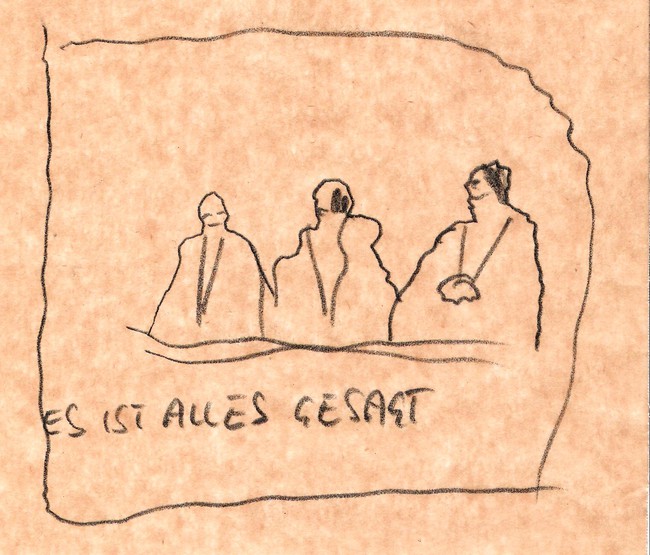 ES IST ALLES GESAGT